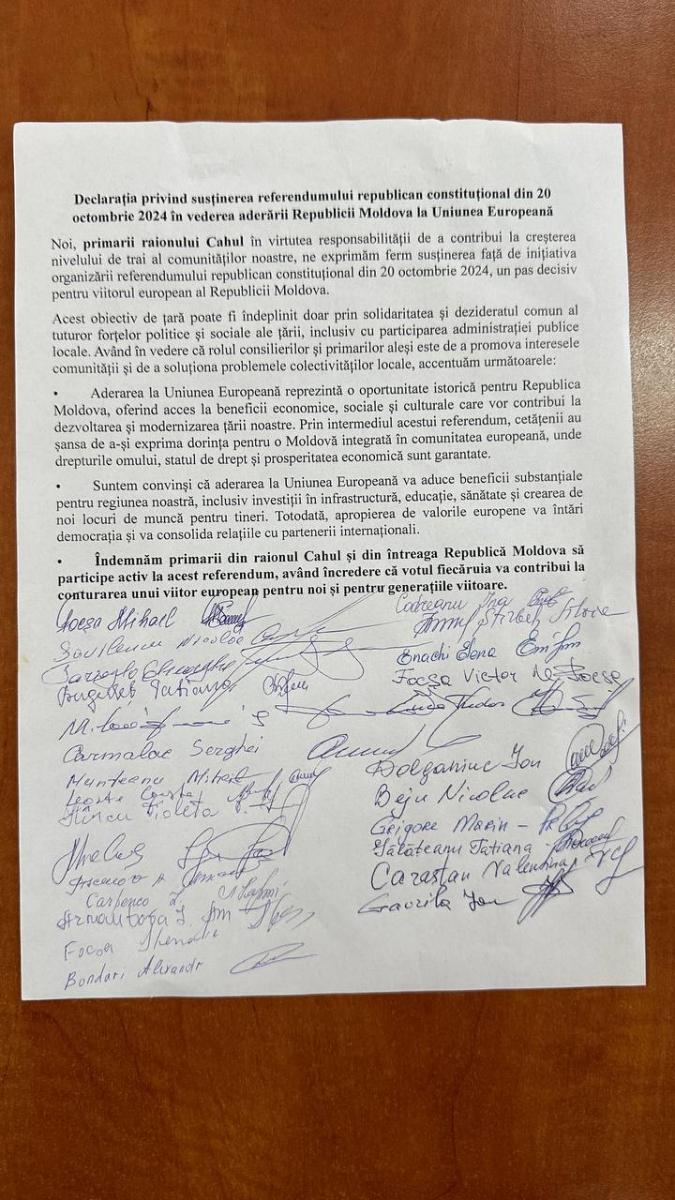 Declarația privind susținerea referendumului republican constituțional din 20
octombrie 2024 în vederea aderării Republicii Moldova la Uniunea Europeană
Noi, primarii raionului Cahul în virtutea responsabilității de a contribui la creșterea
nivelului de trai al comunităților noastre, ne exprimăm ferm susținerea față de inițiativa
organizării referendumului republican constituțional din 20 octombrie 2024, un pas decisiv
pentru viitorul european al Republicii Moldova.
Acest obiectiv de țară poate fi îndeplinit doar prin solidaritatea și dezideratul comun al
tuturor forțelor politice și sociale ale țării, inclusiv cu participarea administrației publice
locale. Având în vedere că rolul consilierilor și primarilor aleși este de a promova interesele
comunității și de a soluționa problemele colectivităților locale, accentuăm următoarele:
• Aderarea la Uniunea Europeană reprezintă o oportunitate istorică pentru Republica
Moldova, oferind acces la beneficii economice, sociale și culturale care vor contribui la
dezvoltarea și modernizarea țării noastre. Prin intermediul acestui referendum, cetățenii au
șansa de a-și exprima dorința pentru o Moldovă integrată în comunitatea europeană, unde
drepturile omului, statul de drept și prosperitatea economică sunt garantate.
• Suntem convinși că aderarea la Uniunea Europeană va aduce beneficii substanțiale
pentru regiunea noastră, inclusiv investiții în infrastructură, educație, sănătate și crearea de
noi locuri de muncă pentru tineri. Totodată, apropierea de valorile europene va întări
democrația și va consolida relațiile cu partenerii internaționali.
• Îndemnăm primarii din raionul Cahul și din întreaga Republică Moldova să
participe activ la acest referendum, având încredere că votul fiecăruia va contribui la
conturarea unui viitor european pentru noi și pentru generațiile viitoare.
Mihail
Codreanu
Nicolae
Gheorghe
Enachi Elena
Tatiana
Focșa Victor
Tudor
Carmalac Serghei
Ion
Munteanu Mihail
Beju Nicolae
Violeta
Grigore Marin
Tatiana
Carastan Valentina
Carpenco
Gavrila Ion
Focșa
Bondari Alexandr